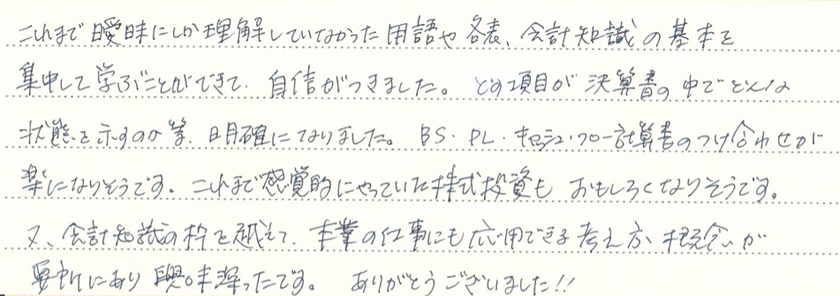 これまで曖昧にしか理解していなかった用語や各表、会計知識の基本を
集中して学ぶことができて、自信がつきました。どの項目が決算書の中でどんな
状態を示すのか等、明確になりました。BS・PL・キャッシュ・フロー計算書のつけ合わせが
楽になりそうです。これまで感覚的にやっていた株式投資もおもしろくなりそうです。
又、会計知識の枠を越えて、本業の仕事にも応用できる考え方、概念が
要所にあり興味深かったです。ありがとうございました!!